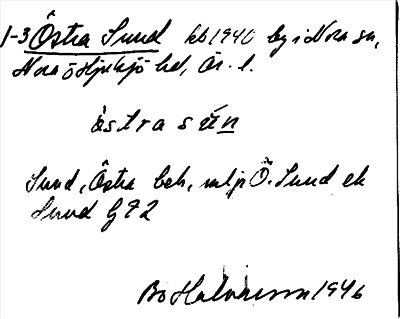 1-3 Östra Sund kb 1940 by i Nora sn,
Nora o Hjulsjö hd, Ör. l.
östra sún
Sund, Östra beb, mtlja Ö. Sund ek
Sund G72
Bo Halvarsson 1946